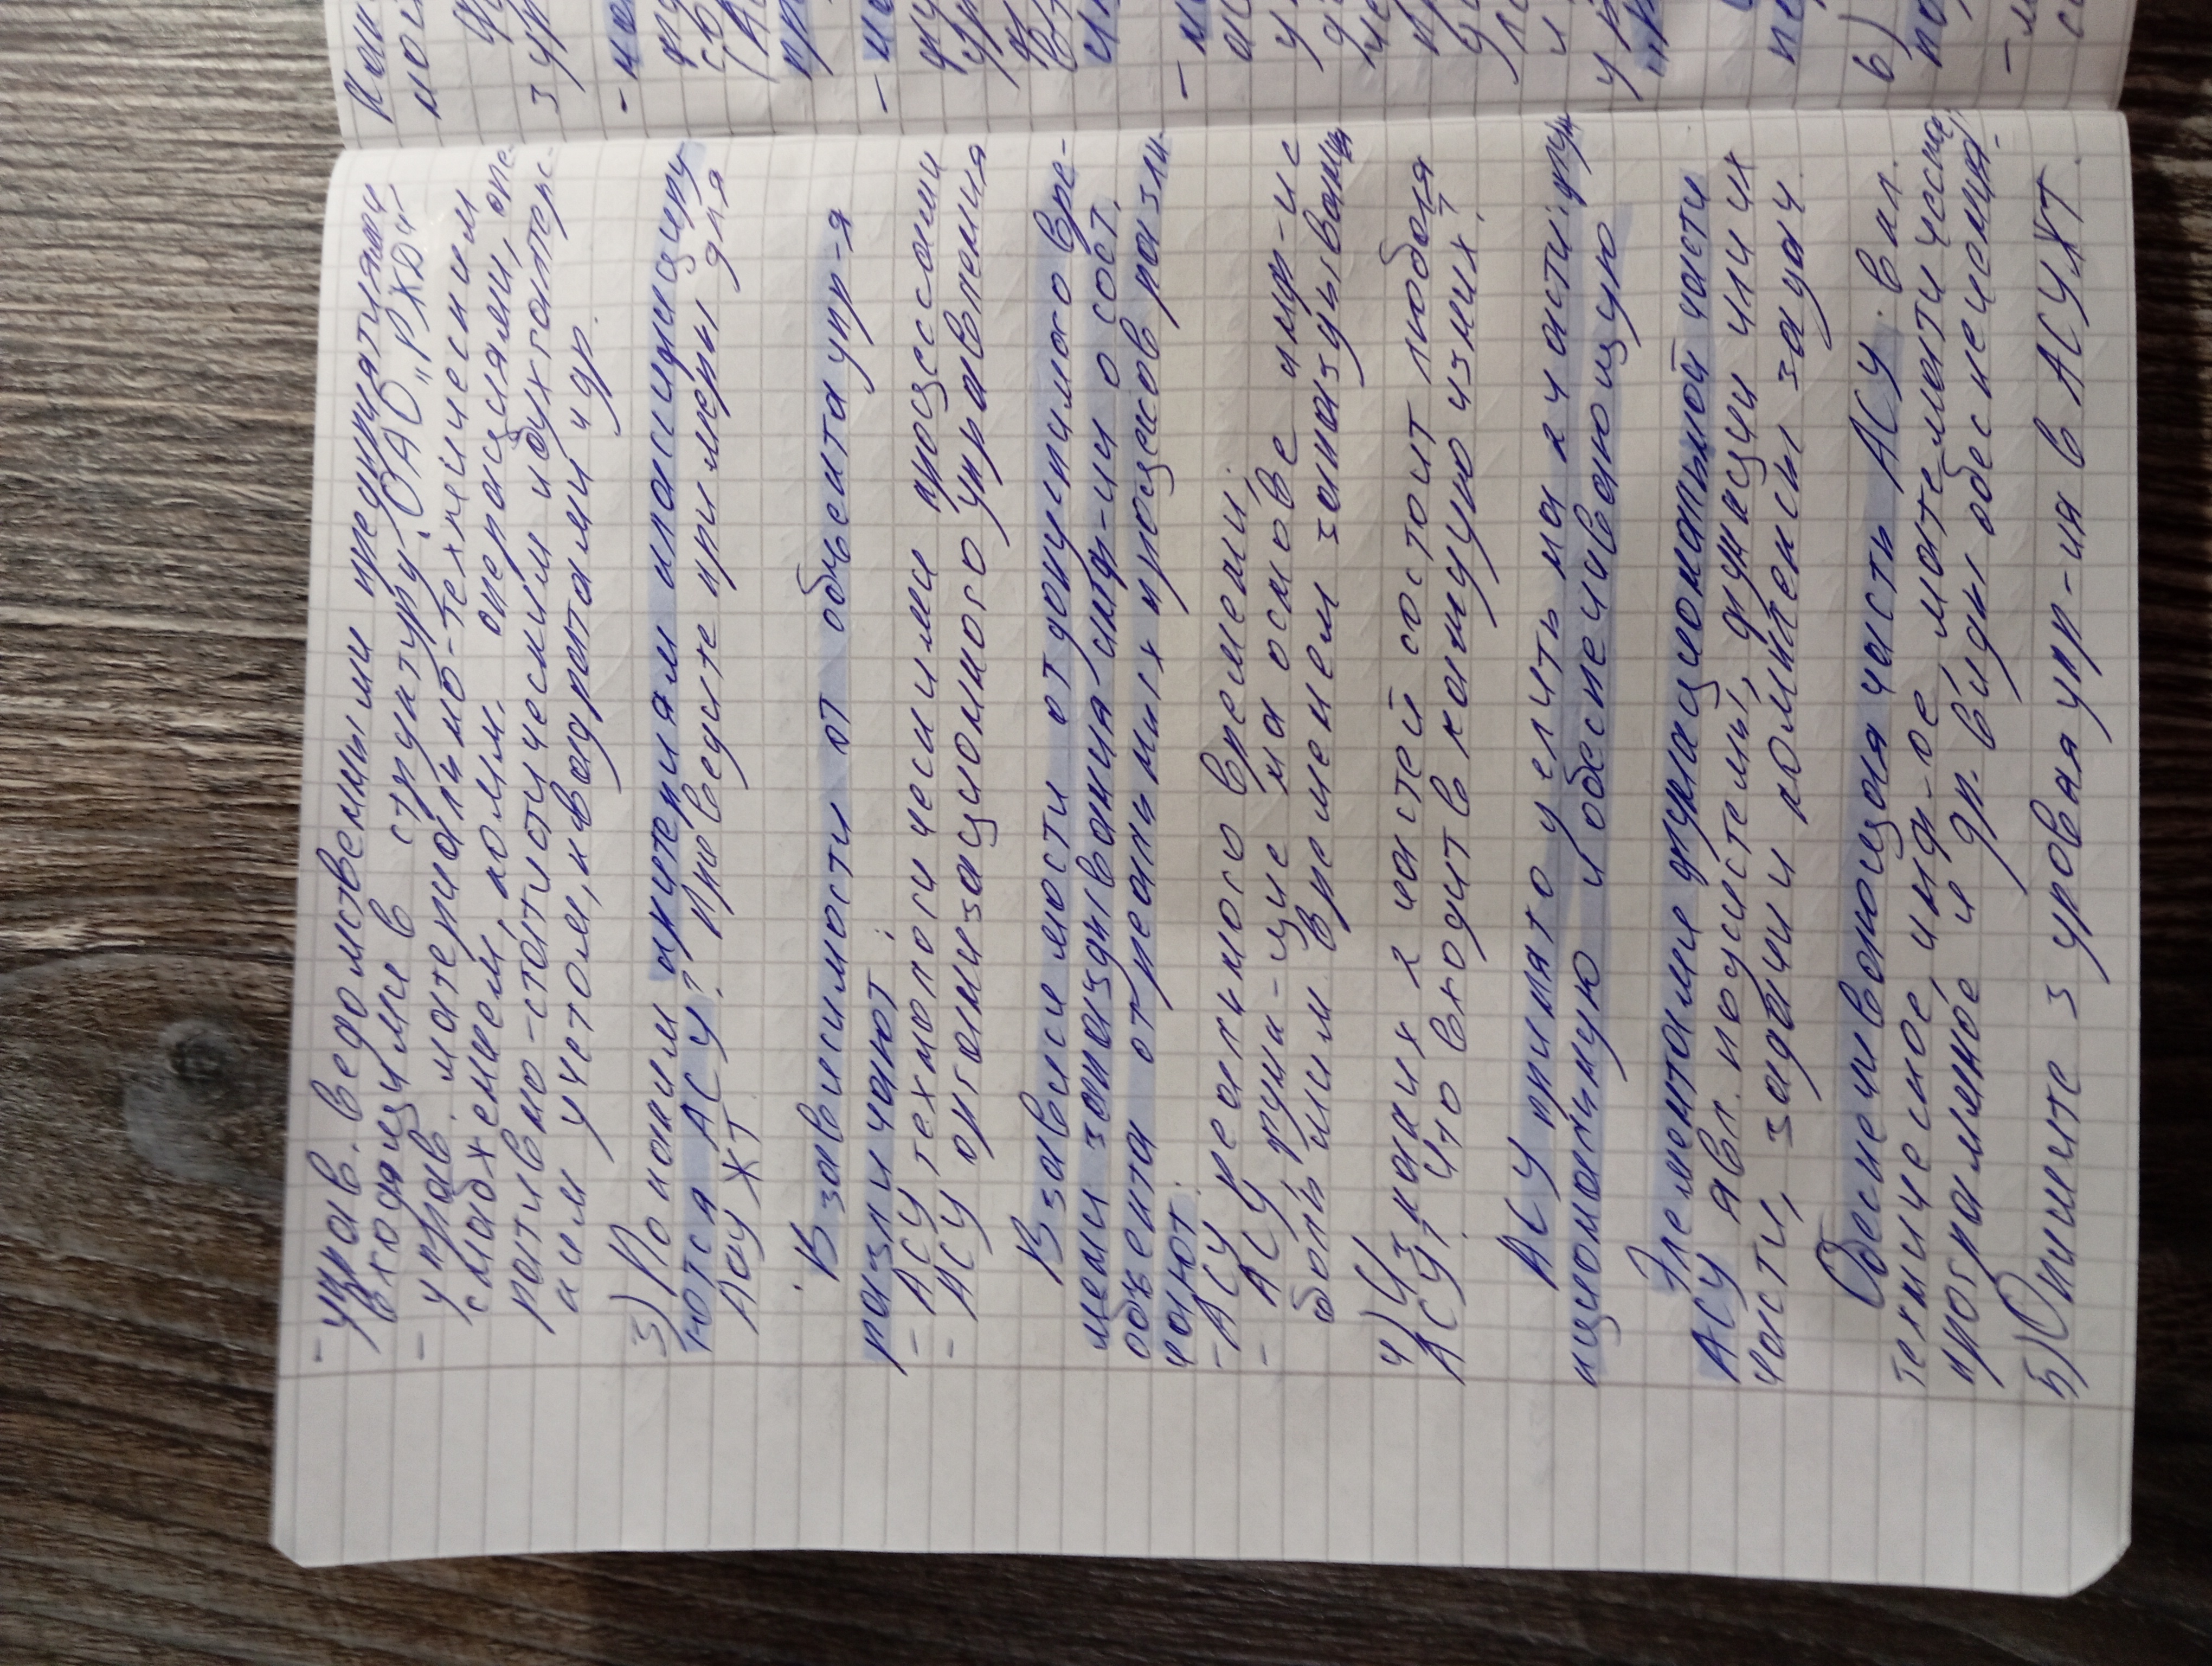 - управ. ведомственными предприятиями
входящими в структуру "ОАО "РЖД";
- управ. материально-техническим
снабжением, комм. операциями, опе-
ративно-статистическим и бухгалтерс-
ким учетом, кадрами и др.
3) По каким критериям классифициру-
ются АСУ? Приведите примеры для
АСУЖТ.
В зависимости от объекта упр-я
различают:
- АСУ технологическими процессами
- АСУ организационного управления
В зависимости от допустимого вре-
мени запаздывания инф-ии о сост.
объекта от реальных процессов разли-
чают:
- АСУ реального времени;
- АСУ функ-щие на основе инф-и с
большим временем запаздывания
4) Из каких 2 частей состоит любая
АСУ? Что входит в каждую из них?
АСУ принято делить на 2 части: фун-
кциональную и обеспечивающую
Элементами функциональной части
АСУ явл. подсистемы, функции или их
части, задачи и комплексы задач.
Обеспечивающая часть АСУ вкл.
техническое, инф-ое, математическое,
программное и др. виды обеспечения.
5) Опишите 3 уровня упр-ия в АСУЖТ.
3 ур
6)